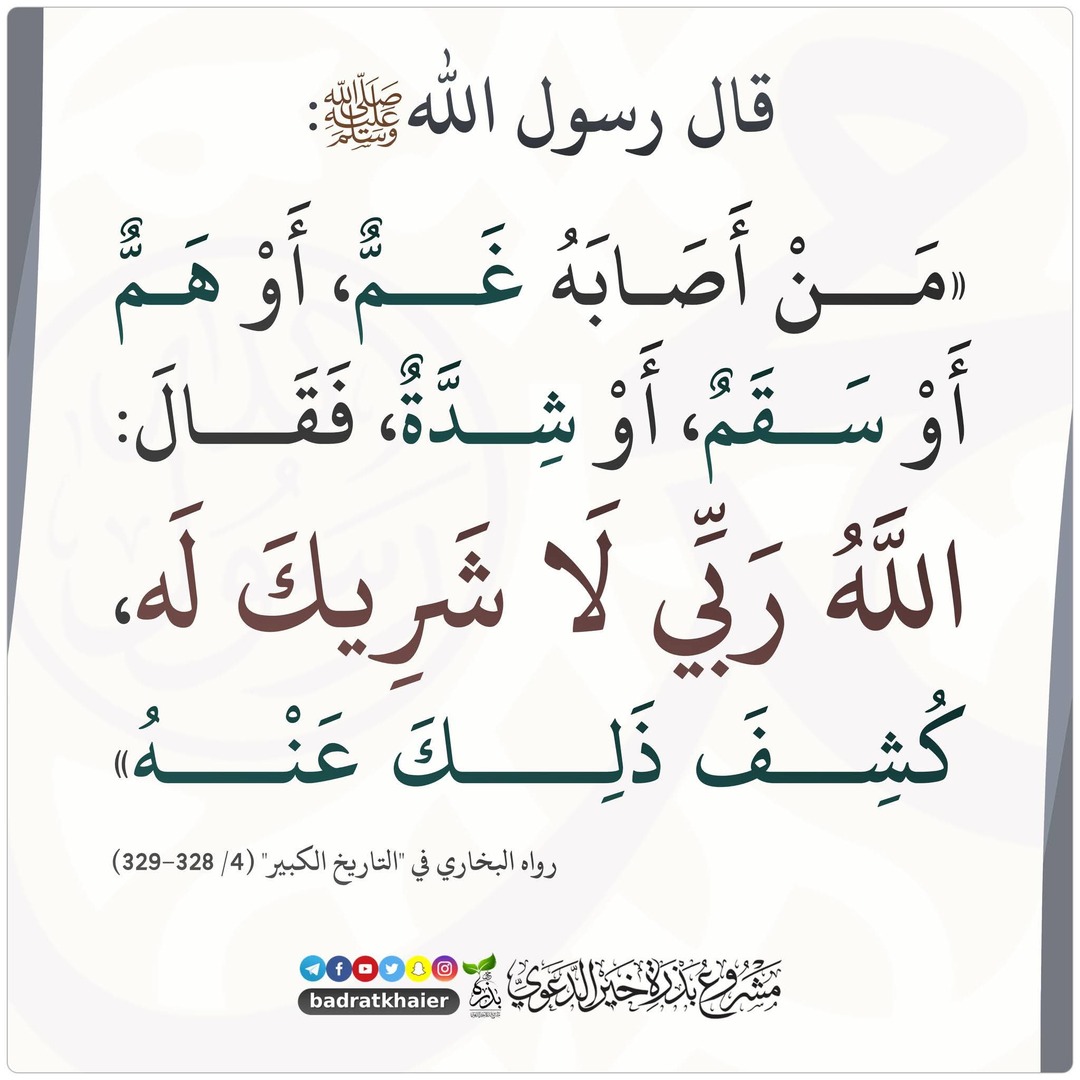 قال رسول الله ﷺ:
«مَـــنْ أَصَـابَهُ غَـــمٌّ، أَوْ هَـمٌّ
أَوْ سَـــقَمٌ، أَوْ شِـــدَّةٌ، فَقَـــالَ:
اللَّهُ رَبِّي لَا شَرِيكَ لَه،
كُشِـــفَ ذَلِـــكَ عَنْـــهُ»
رواه البخاري في "التاريخ الكبير" (4/ 328-329)
مشروع بذرة خير الدعوي
بذرة
badratkhaier